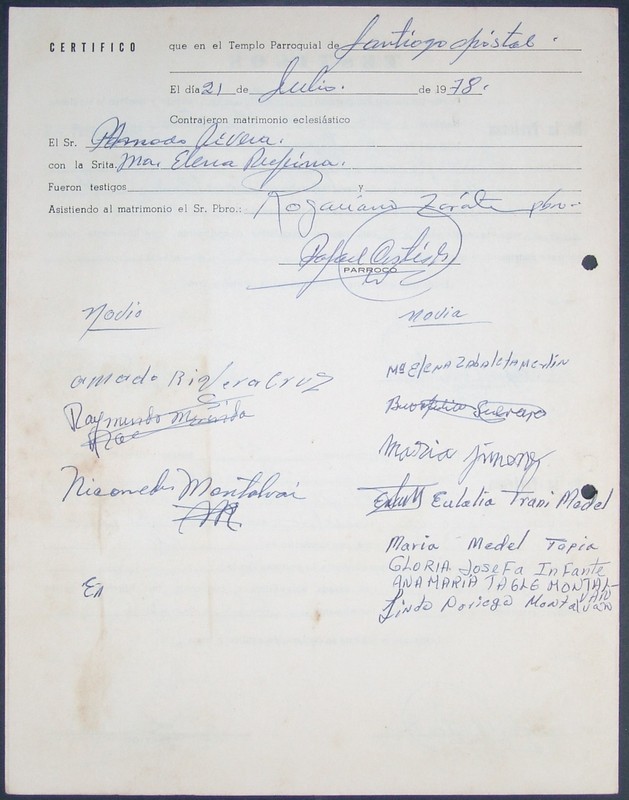 CERTIFICO que en el Templo Parroquial de Santiago Apóstol.
El día 21 de Julio. de 1978.
Contrajeron matrimonio eclesiástico
El Sr. Amado Rivera.
con la Srita. Ma. Elena
Fueron testigos y
Asistiendo al matrimonio el Sr. Pbro.: Zárate pbro.
Rafael
PARROCO
Novio
novia
amado Rivera Cruz
Ma ElENA Zabaleta merlin
Raymundo Miranda
Maria Jimenez
Nicomedes Montalvan
Eulalia Trani Medel
Maria Medel Tapia
GLORIA JoseFa InFante
ANA MARIA TAGLE MONTALVAN
Linda Montalván
En